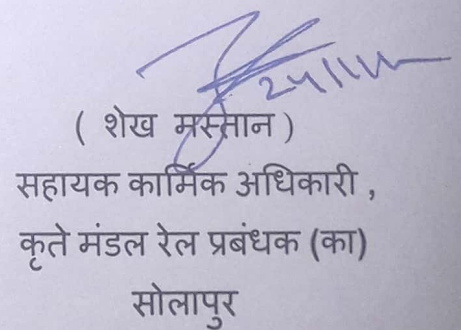 ( शेख मस्तान )
सहायक कार्मिक अधिकारी ,
कृते मंडल रेल प्रबंधक (का)
सोलापुर